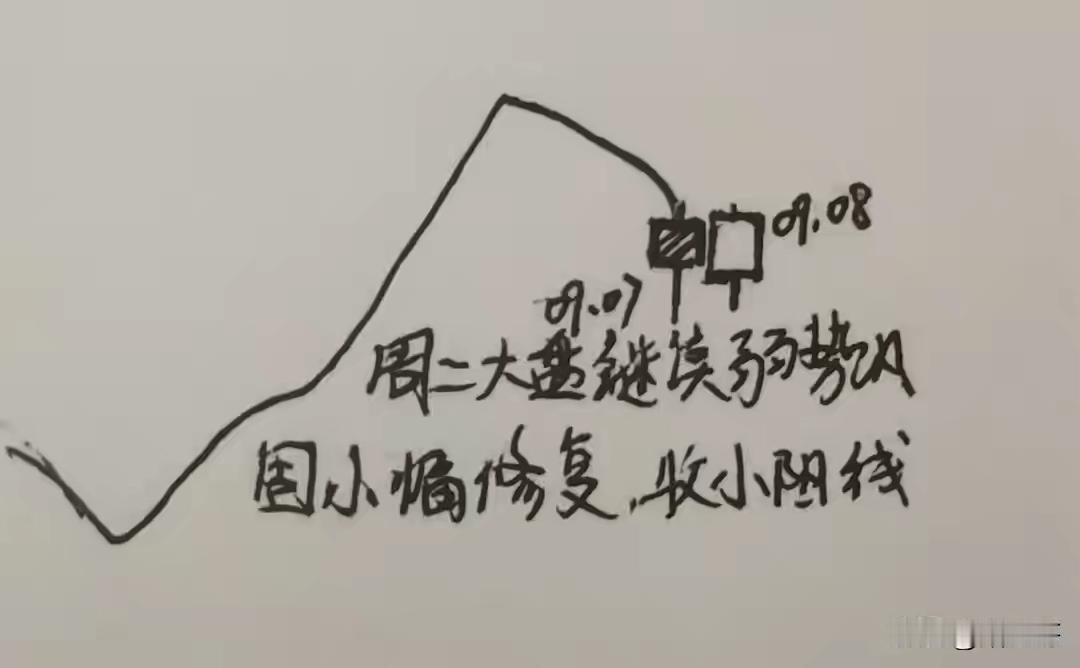 09.08
09.07
周二大盘继续弱势
周小幅修复,收小阳线